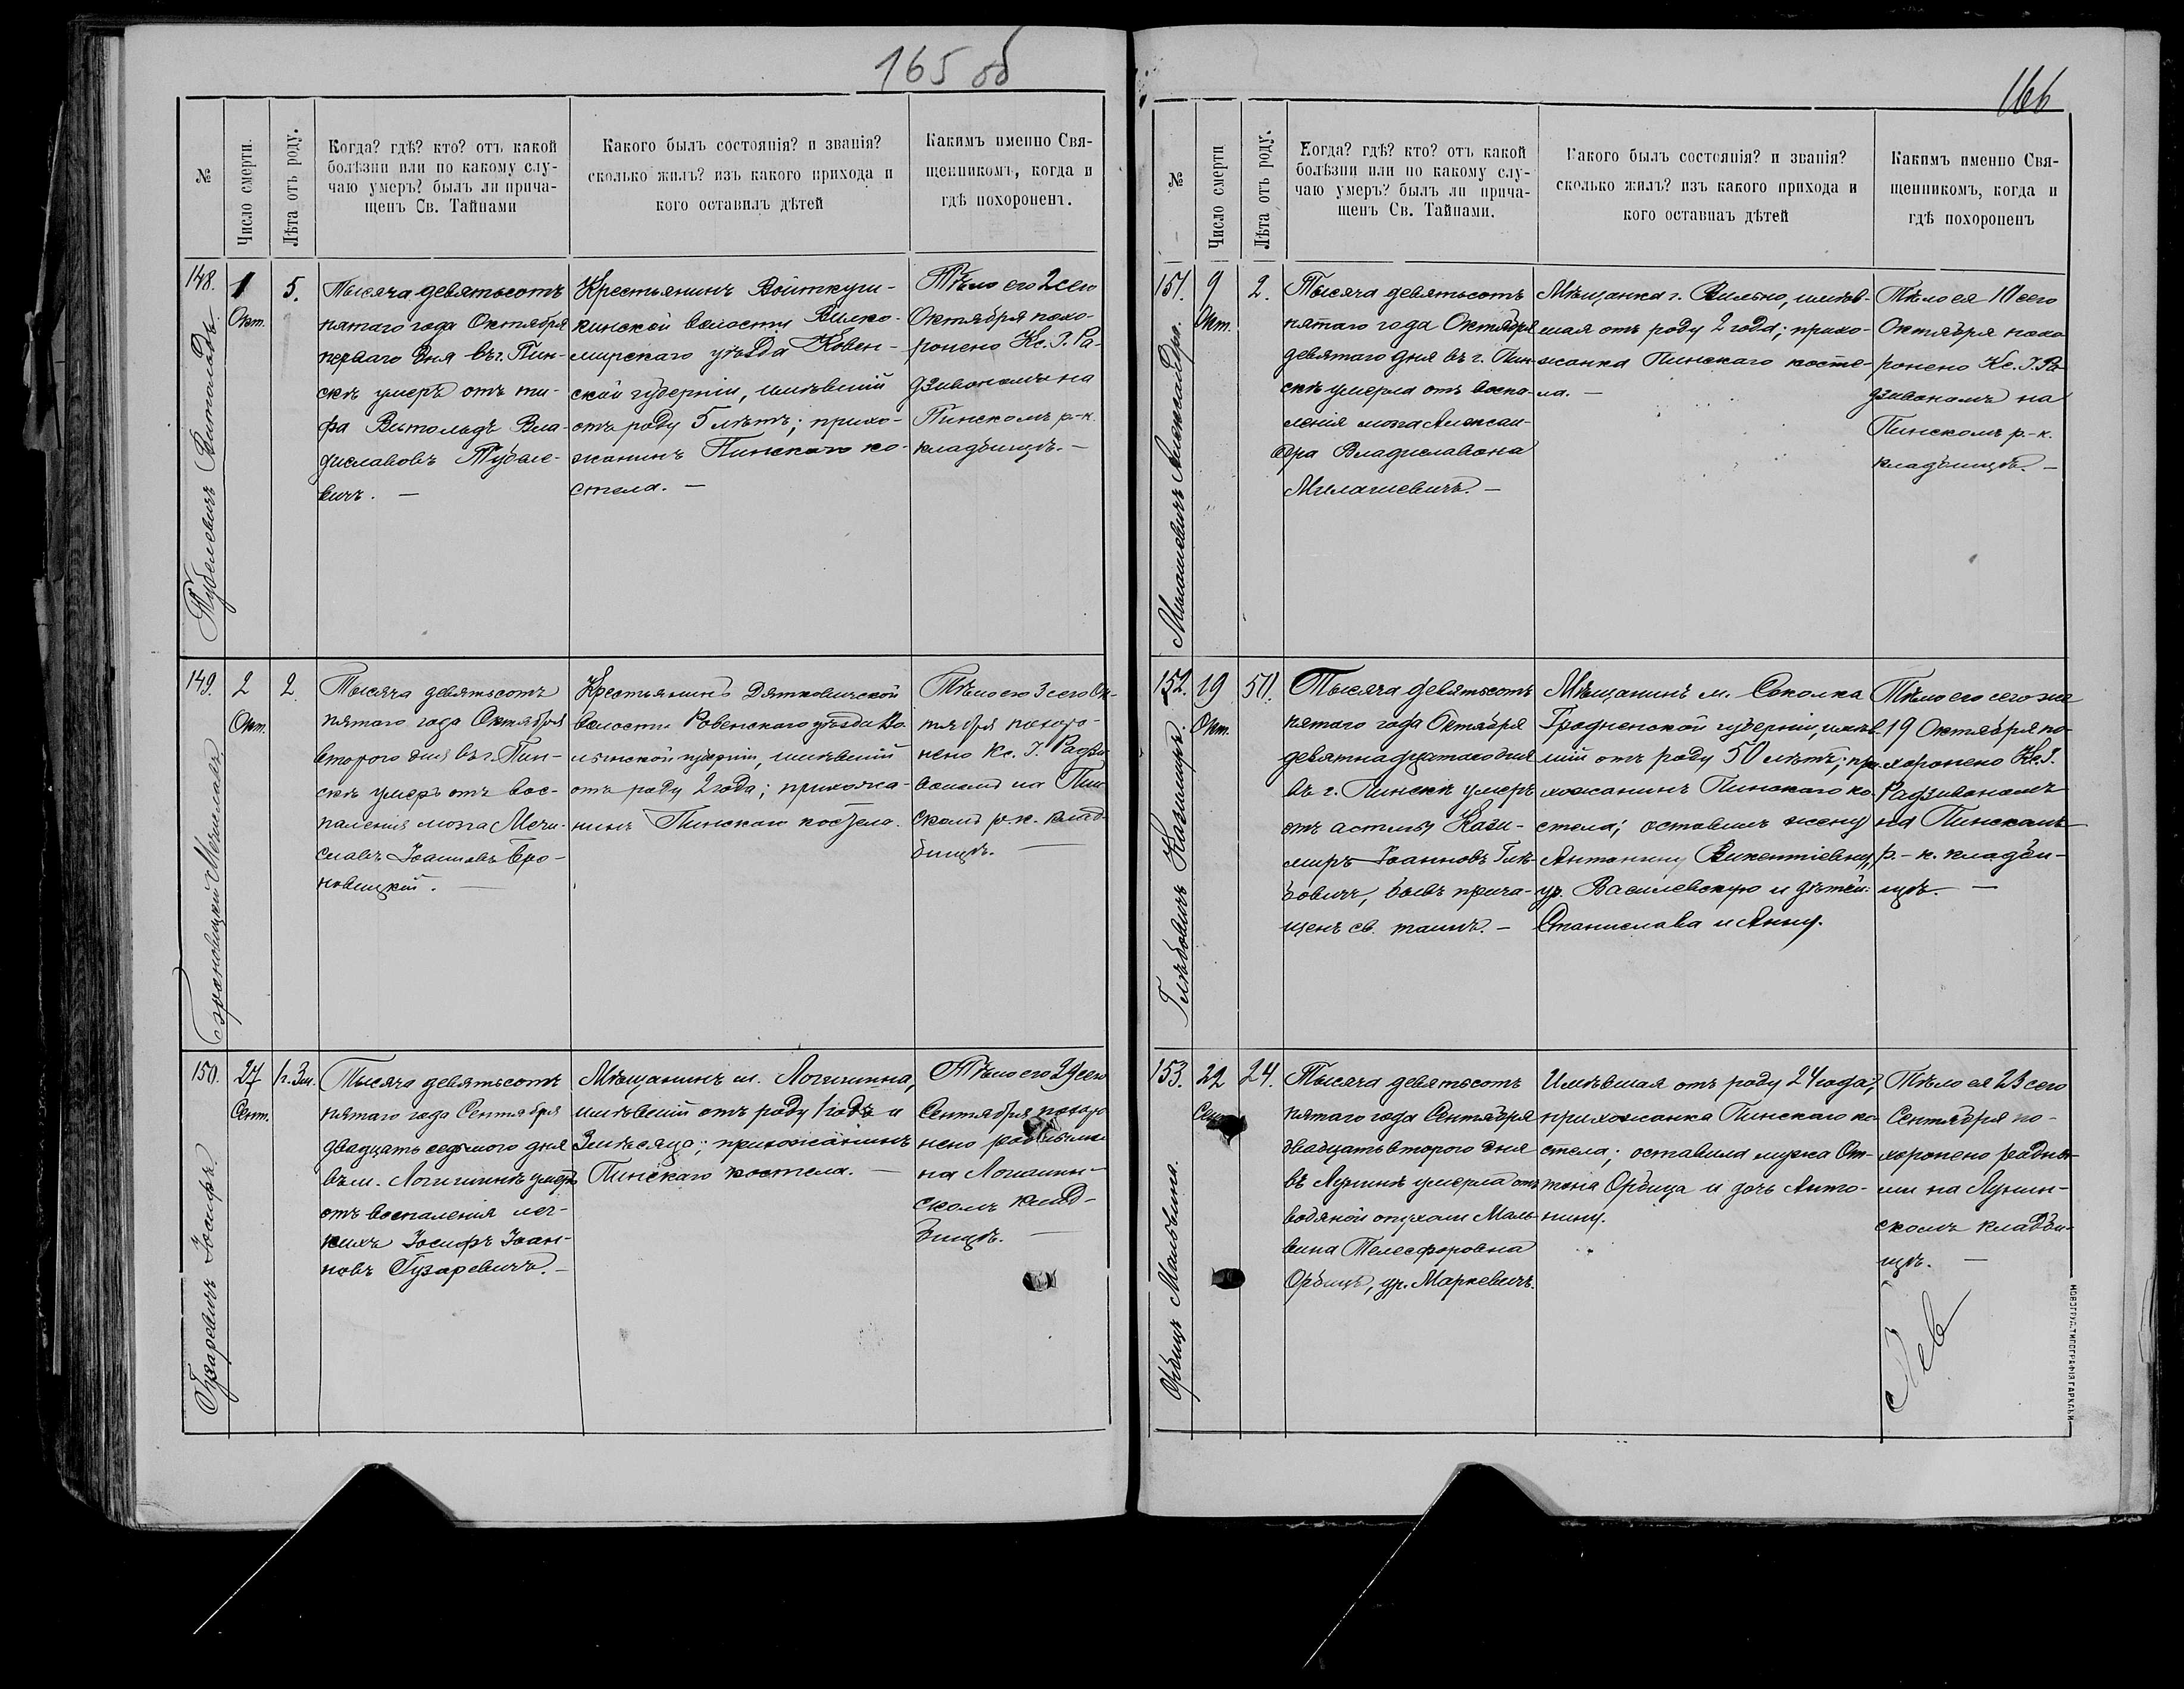 165 об
№
Число смерти.
Лѣта отъ роду.
Когда? гдѣ? кто? отъ какой
болѣзни или по какому слу-
чаю умеръ? былъ ли прича-
щенъ Св. Тайнами
Какого былъ состоянія? и званія?
сколько жилъ? изъ какого прихода и
кого оставилъ дѣтей
Какимъ именно Свя-
щенникомъ, когда и
гдѣ похороненъ.
148.
Тубелевичъ Витольдъ.
1
Окт.
5.
Тысяча девятьсотъ
пятаго года Октября
перваго дня въ г. Пин-
скѣ умеръ отъ ти-
фа Витольдъ Вла-
диславовъ Тубеле-
вичъ. —
Крестьянинъ Войткуш-
кинской волости Вилко-
мирскаго уѣзда Ковен-
ской губерніи, имѣвшій
отъ роду 5 лѣтъ; прихо-
жанинъ Пинскаго ко-
стела. —
Тѣло его 2 сего
Октября похо-
ронено Кс. І. Ра-
дзивономъ на
Пинскомъ р-к.
кладбищѣ. —
149.
Броновицкій Мечиславъ
2
Окт.
2
Тысяча девятьсотъ
пятаго года Октября
второго дня въ г. Пин-
скѣ умеръ отъ вос-
паленія мозга Мечи-
славъ Іоанновъ Бро-
новицкій. —
Крестьянинъ Дятковичской
волости Ровенскаго уѣзда Во-
лынской губерніи, имѣвшій
отъ роду 2 года; прихожа-
нинъ Пинскаго костела.
Тѣло его 3 сего Ок-
тября похоро-
нено Кс. І. Радзи-
вономъ на Пин-
скомъ р.к. клад-
бищѣ. —
150.
Гузаревичъ Іосифъ
27
Сент.
1 г. 3 м.
Тысяча девятьсотъ
пятаго года Сентября
двадцать седьмого дня
въ м. Логишинѣ умеръ
отъ воспаленія лег-
кихъ Іосифъ Іоан-
новъ Гузаревичъ. —
Мѣщанинъ м. Логишина,
имѣвшій отъ роду 1 годъ и
3 мѣсяца; прихожанинъ
Пинскаго костела. —
Тѣло его 29 сего
Сентября похоро
нено родными
на Логишин-
скомъ клад-
бищѣ. —
166
№
Число смерти
Лѣта отъ роду.
Когда? гдѣ? кто? отъ какой
болѣзни или по какому слу-
чаю умеръ? былъ ли прича-
щенъ Св. Тайнами.
Какого былъ состоянія? и званія?
сколько жилъ? изъ какого прихода и
кого оставилъ дѣтей
Какимъ именно Свя-
щенникомъ, когда и
гдѣ похороненъ
151.
Милашевичъ Александра.
9
Окт.
2.
Тысяча девятьсотъ
пятаго года Октября
девятаго дня въ г. Пин-
скѣ умерла отъ воспа-
ленія мозга Алексан-
дра Владиславовна
Милашевичъ. —
Мѣщанка г. Вильно, имѣв-
шая отъ роду 2 года; прихо-
жанка Пинскаго косте-
ла. —
Тѣло ея 10 сего
Октября похо
ронено Кс. І. Ра
дзивономъ на
Пинскомъ р.-к.
кладбищѣ. —
152.
Глѣбовичъ Казимиръ.
19
Окт.
50.
Тысяча девятьсотъ
пятаго года Октября
девятнадцатаго дня
въ г. Пинскѣ умеръ
отъ астмы Кази-
миръ Іоанновъ Глѣ-
бовичъ, бывъ прича-
щенъ св. таинъ. —
Мѣщанинъ м. Соколка
Гродненской губерніи, имѣв-
шій отъ роду 50 лѣтъ; при-
хожанинъ Пинскаго ко-
стела; оставилъ жену
Антонину Викентіевну,
ур. Василевскую и дѣтей:
Станислава и Анну.
Тѣло его сего же
19 Октября по-
хоронено Кс. І.
Радзивономъ
на Пинскомъ
р.-к. кладби-
щѣ. —
153.
Орбицъ Мальвина.
22
Сент.
24.
Тысяча девятьсотъ
пятаго года Сентября
двадцать второго дня
въ Лунинѣ умерла отъ
водяной опухоли Маль-
вина Телесфоровна
Орбицъ, ур. Маркевичъ.
Имѣвшая отъ роду 24 года,
прихожанка Пинскаго ко-
стела; оставила мужа Он-
тона Орбица и дочь Анто-
нину.
Тѣло ея 23 сего
Сентября по-
хоронено родны-
ми на Лунин-
скомъ кладби-
щѣ. —